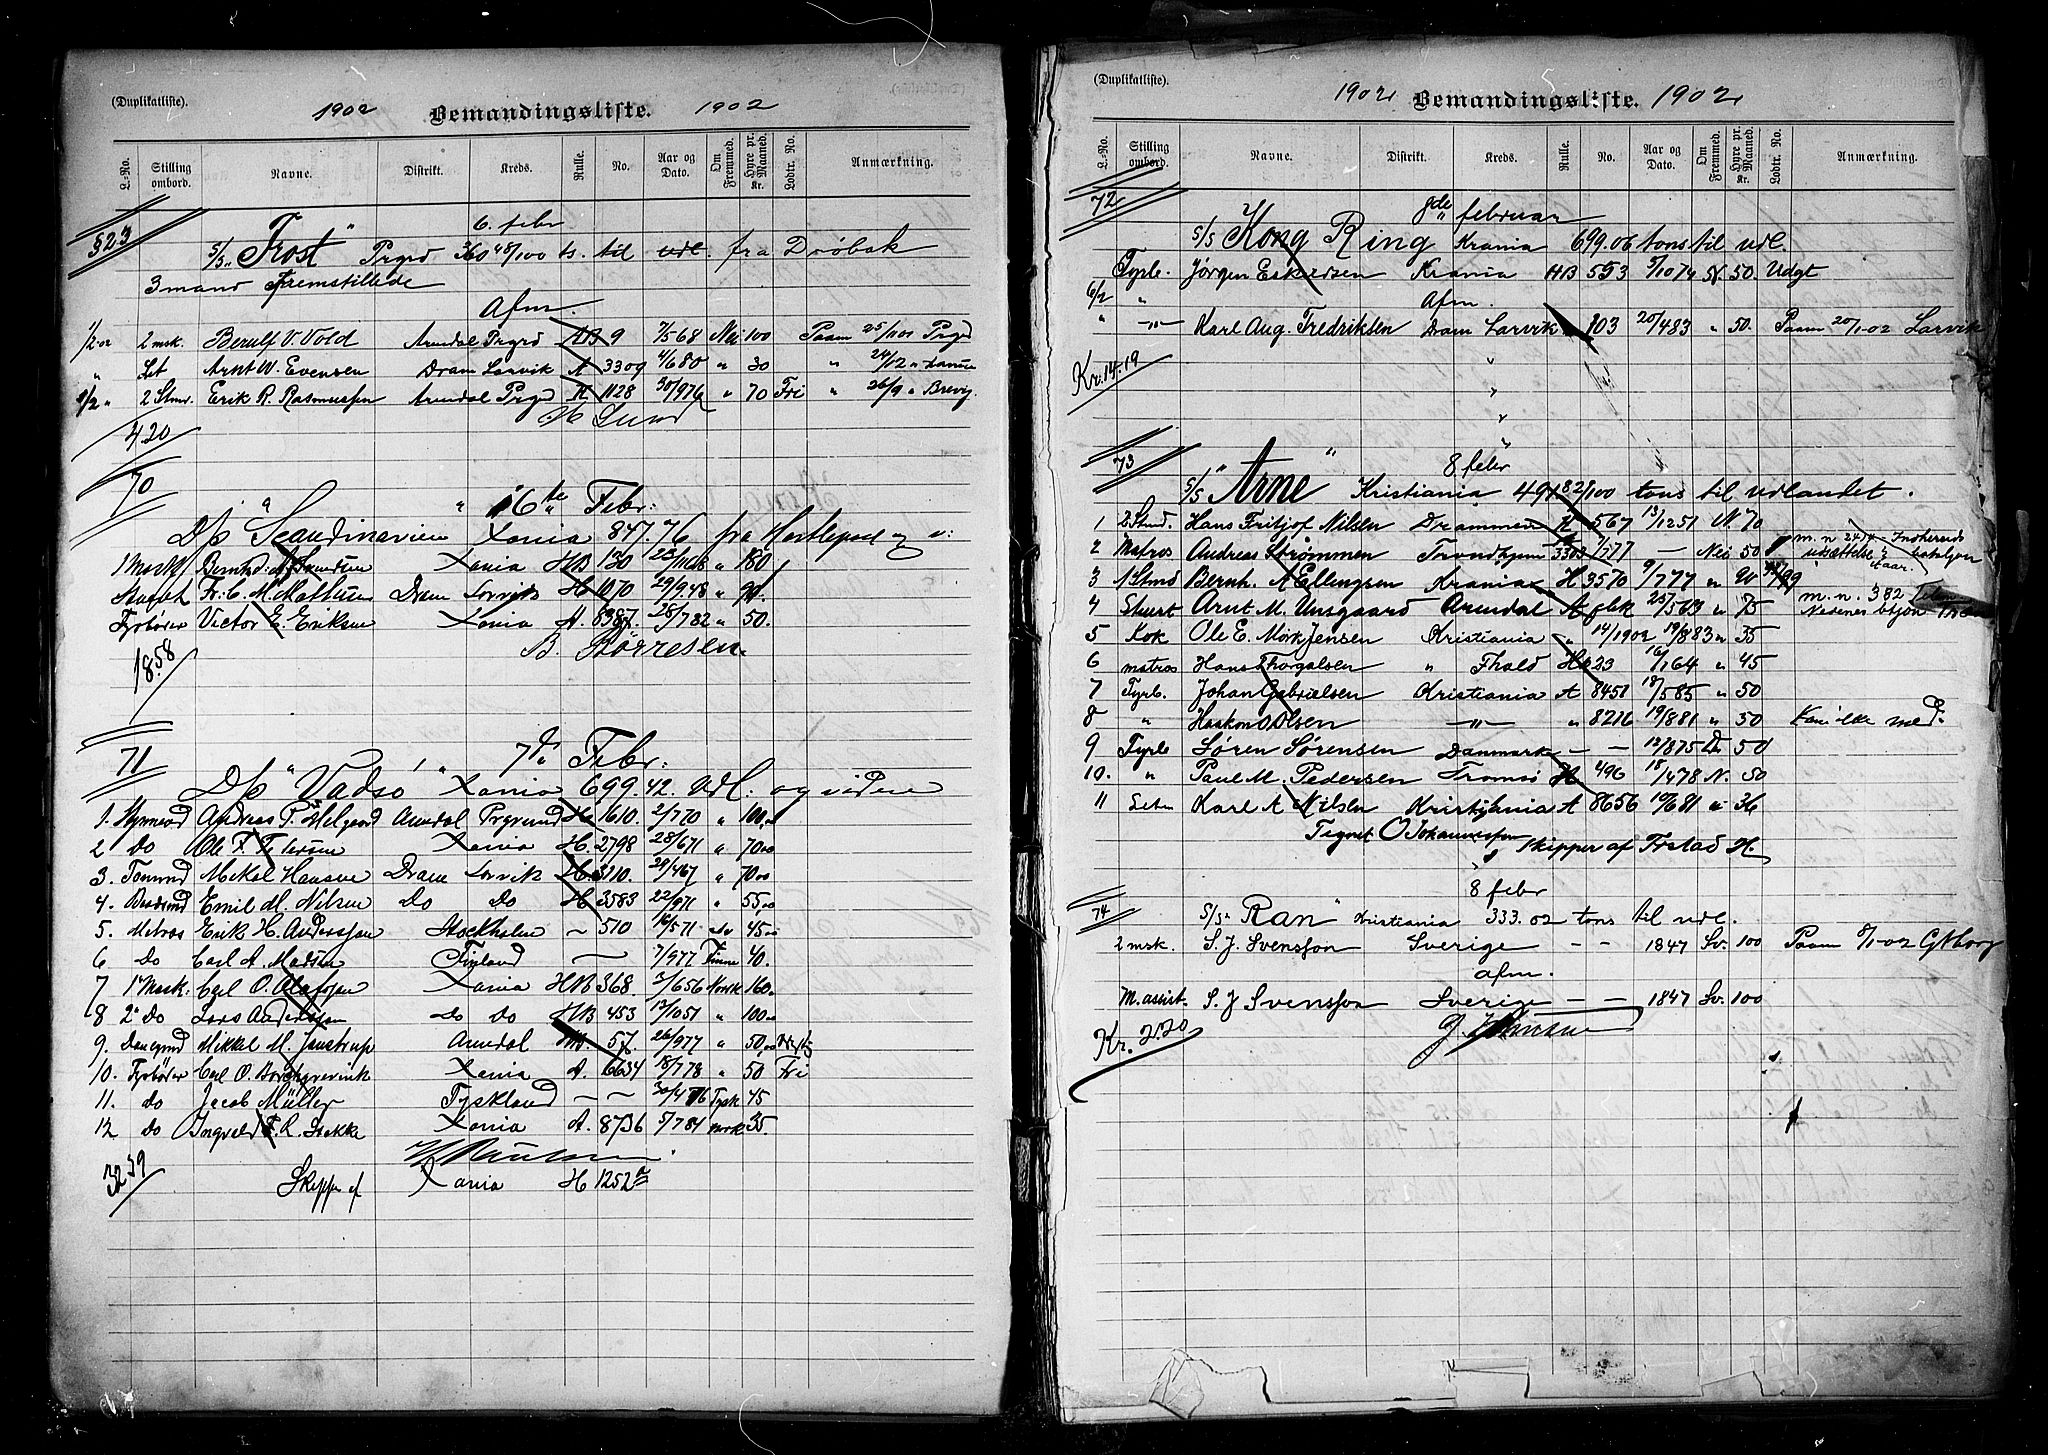 (Duplikatliste).
1902 Bemandingsliste. 1902
L.-No. Stilling ombord. Navne. Distrikt. Kreds. Rulle. No. Aar og Dato. Om Fremmed. Hyre pr. Maaned. Kr. Lodtr. No. Anmærkning.
§23 6. febr
S/S "Frost" Prgrd 360 48/100 ts. til udl. fra Drøbak
3 mand Fremstillede
Afm.
1/2 02 2 msk. Berulf V. Vold Arendal Prgrd HB 9 7/5 68 Nei 100 Paam 25/1 01 Prgd
" Let Arnt W. Evensen Dram Larvik A 3309 4/6 80 " 30 " 24/12 "
2/2 " 2 Stmr. Erik R. Rasmussen Arendal Prgrd H 1128 30/9 76 " 70 Fri " 26/9 " Brevig.
Lund
4.20
70 6te Febr:
D/s "Scandinavien" Xania 847.76 fra Hartlepool og v:
1 Mask Xania HB 130 " 180
Fr. C. M. Mathisen Dram Larvik H 1070 29/9 48 " 90.
Fyrbøter Victor E. Eriksen Xania A. 8387 25/7 82 " 50.
B. Børresen.
18.58
71 7de Febr:
D/s "Vadsø" Xania 699.42. Udl. og videre
1. Styrmand Andreas P. Helgerød Arendal Prgrund H 1610. 2/7 70 " 100,00
2 Do Ole F. Petersen Xania H. 2798 28/6 71 " 70 00
3. Tømmd Mikal Hansen Dram Larvik H. 3110. 29/4 67 " 70 00
4. Bestmd Emil M. Nilsen Do Do H 3583 22/9 71 " 55,00
5. Matros Erik H. Andersson Stockholm — 510 16/5 71 Sv 45,00
6 Do Carl A. Madsen Finland — 7/9 77 Finne 40.
7 1' Mask: Carl O. Olafsen Xania HB 368. 3/6 56 Norsk 160.
8 2' Do Lars Andersen Do Do HB 453 13/10 51 " 100.00
9. Mikkel M. Jenstrup Arendal 57. 26/9 77 " 50,00
10. Fyrbøter Carl O. Borchgrevink Xania A. 6634 18/7 78 " 50 Fri
11. do Jacob Müller Tyskland — — 30/4 76 Tysk 45
12 do Ingvald F. L. Løkke Xania A. 8736 5/7 84 norsk 35.
32.39
Skipper af Xania H 1252
(Duplikatliste).
1902 Bemandingsliste. 1902
L.-No. Stilling ombord. Navne. Distrikt. Kreds. Rulle. No. Aar og Dato. Om Fremmed. Hyre pr. Maaned. Kr. Lodtr. No. Anmærkning.
72 8de februar
S/S Kong Ring Krania 699.06 tons til udl.
Fyrb. Jørgen Eskedsen Krania HB 553 5/10 74 N 50. Udgt
6/2 " Afm.
" —"— Karl Aug. Fredriksen Dram Larvik 103 20/4 83 " 50. Paam 20/1-02 Larvik
Kr. 14.19
73 8 febr
S/S "Arne" Kristiania 491 82/100 tons til udlandet.
1 2 Stmd. Hans Fritjof Nilsen Drammen H 567 13/12 51 N. 70
2 Matros Andreas Strømmen Trondhjem 3303 7/7 77 — Nei 50 m. n 247 Indherreds bataljon udsættelse 2 aar.
3 1 Stmd Bernh. A Ellingsen Krania H 3570 9/7 77 " 90
4 Stuert Arnt M. Unsgaard Arendal A gbk 25/5 63 " 75 m. n. 382 Nedenes btjon
5 Kok Ole E. Mørk Jensen Kristiania " 14/1902 19/8 83 " 35
6 matros Hans Thorgalsen " Fhald H 23 16/1 64 " 45
7 Fyrb. Johan Gabrielsen Kristiania A 8451 18/5 85 " 50
8 " Haakon O. Olsen —"— " 8216 19/8 81 " 50 Kom ikke med.
9 Fyrb Søren Sørensen Danmark — — 12/8 75 D 50
10. " Paul M. Pedersen Tromsø H 496 18/4 78 N. 50
11 Letm Karl A. Nilsen Kristiania A 8656 10/6 81 " 36
Tegnet O Johannessen
Skipper af Frstad H.
8 febr
74 S/S "Ran" Kristiania 333.02 tons til udl.
2 msk. S. J. Svensson Sverige — — 1847 Sv. 100 Paam 8/1-02 Gtborg
afm.
M. assist. S. J Svensson Sverige — — 1847 Sv. 100
Kr. 2.20